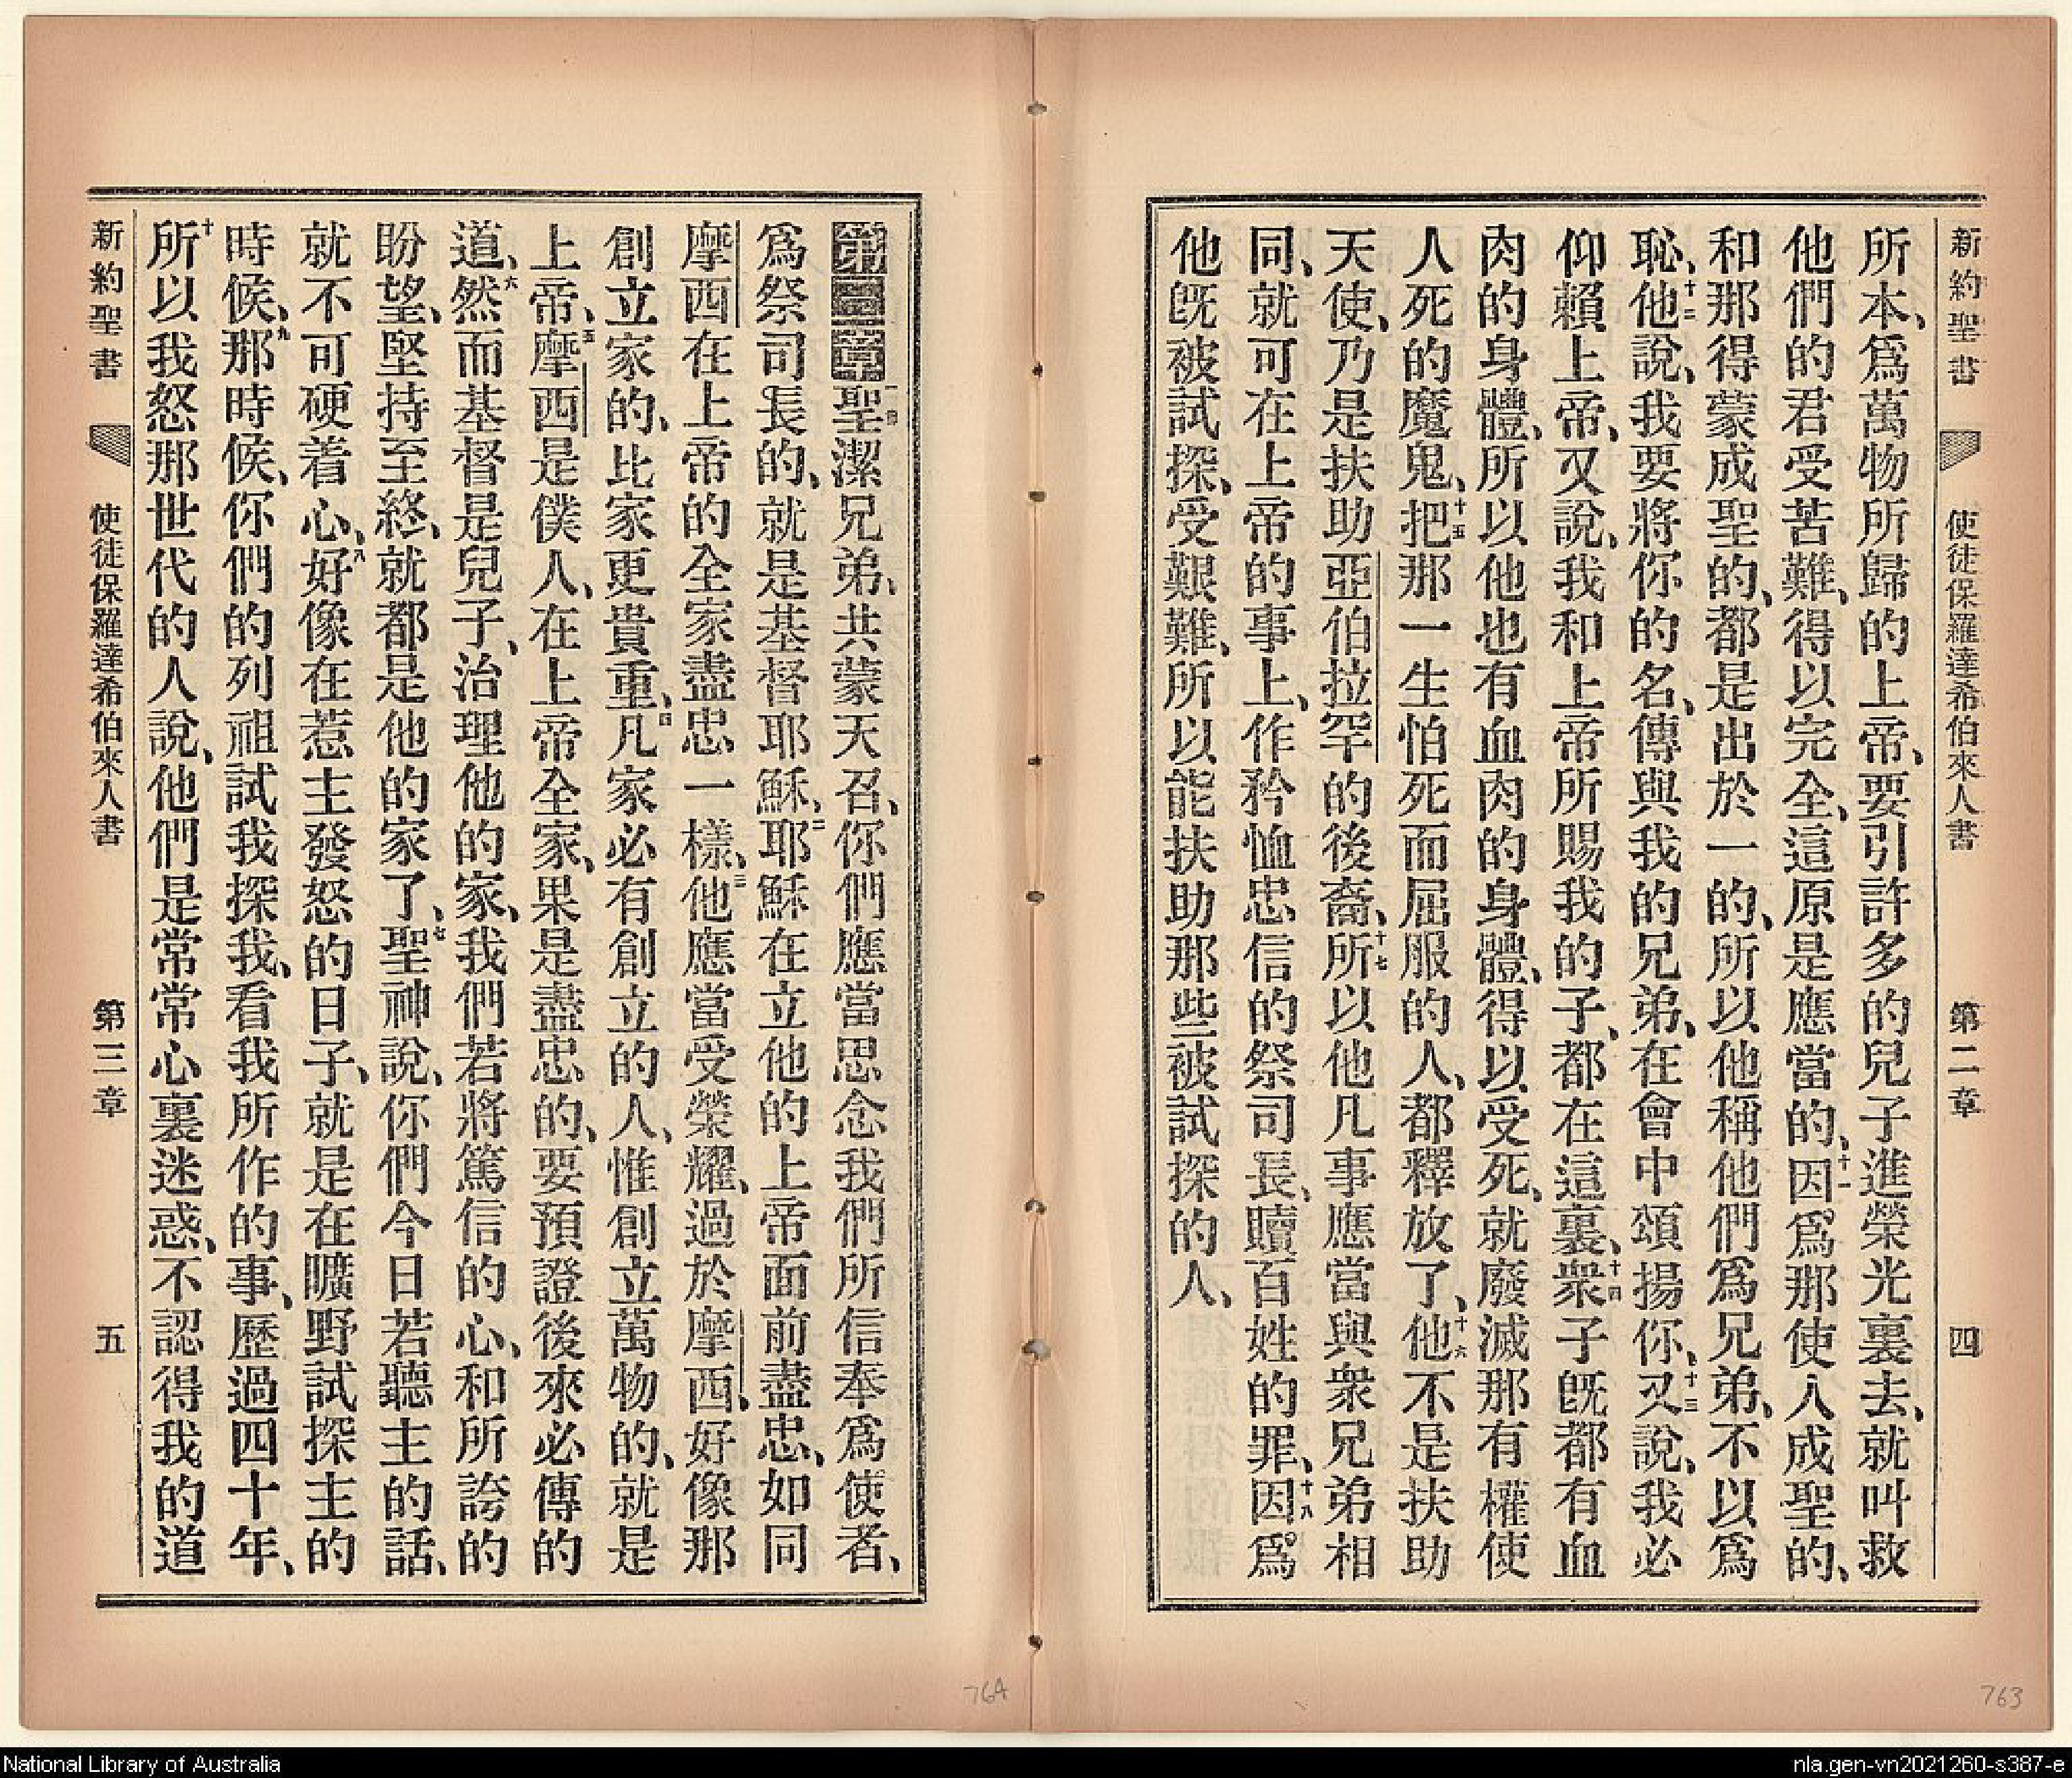 新約聖書 使徒保羅達希伯來人書 第二章 四
所本、爲萬物所歸的上帝、要引許多的兒子進榮光裏去、就叫救
他們的君受苦難、得以完全、這原是應當的、十一因爲那使人成聖的、
和那得蒙成聖的、都是出於一的、所以他稱他們爲兄弟、不以爲
恥、十二他說、我要將你的名、傳與我的兄弟、在會中頌揚你、十三又說、我必
仰賴上帝、又說、我和上帝所賜我的子、都在這裏、十四衆子旣都有血
肉的身體、所以他也有血肉的身體、得以受死、就廢滅那有權使
人死的魔鬼、十五把那一生怕死而屈服的人、都釋放了、十六他不是扶助
天使、乃是扶助亞伯拉罕的後裔、十七所以他凡事應當與衆兄弟相
同、就可在上帝的事上、作矜恤忠信的祭司長、贖百姓的罪、十八因爲
他旣被試探、受艱難、所以能扶助那些被試探的人、
763
第三章一聖潔兄弟、共蒙天召、你們應當思念我們所信奉爲使者、
爲祭司長的、就是基督耶穌、二耶穌在立他的上帝面前盡忠、如同
摩西在上帝的全家盡忠一樣、三他應當受榮耀、過於摩西、好像那
創立家的、比家更貴重、四凡家必有創立的人、惟創立萬物的、就是
上帝、五摩西是僕人、在上帝全家、果是盡忠的、要預證後來必傳的
道、六然而基督是兒子、治理他的家、我們若將篤信的心、和所誇的
盼望、堅持至終、就都是他的家了、七聖神說、你們今日若聽主的話、
就不可硬着心、八好像在惹主發怒的日子、就是在曠野試探主的
時候、九那時候、你們的列祖試我探我、看我所作的事、歷過四十年、
十所以我怒那世代的人說、他們是常常心裏迷惑、不認得我的道
新約聖書 使徒保羅達希伯來人書 第三章 五
764
National Library of Australia
nla.gen-vn2021260-s387-e